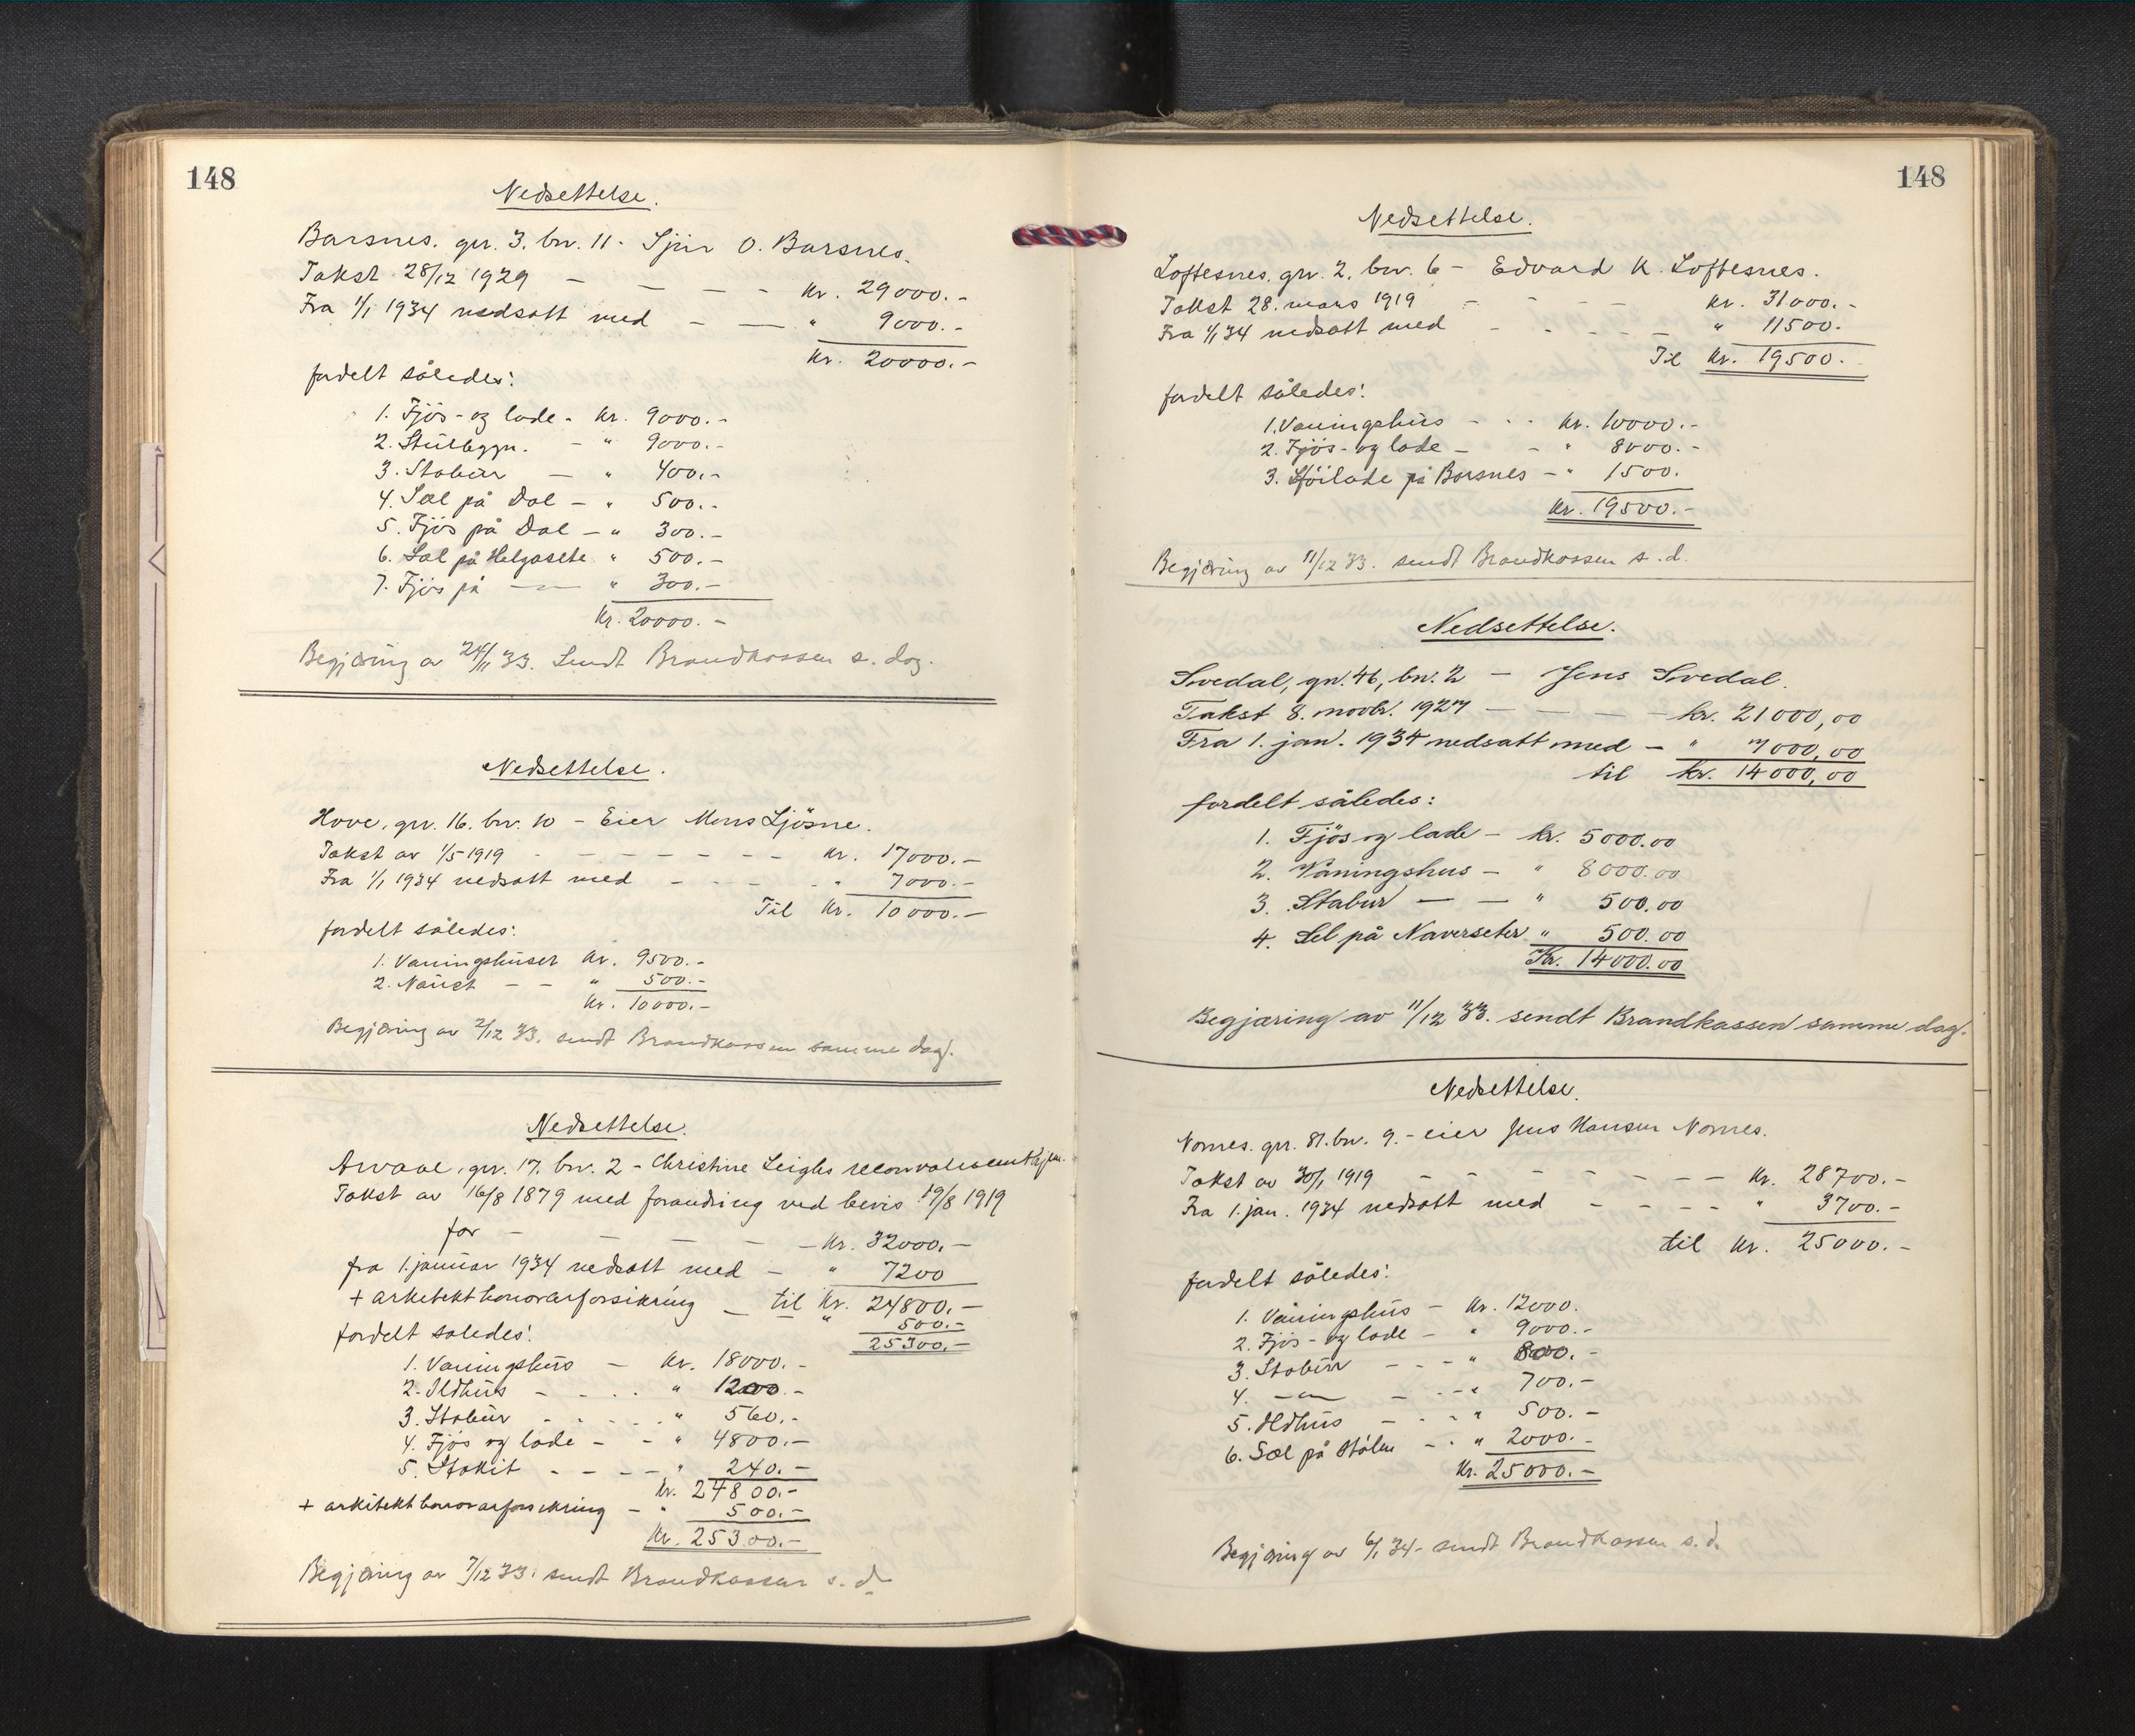 148
Nedsettelse.
Barsnes. gr. 3. br. 11. Sjur O. Barsnes.
Takst 28/12 1929 - - - - kr. 29000.-
Fra 1/1 1934 nedsatt med - — " 9000.-
Kr. 20000.-
fordelt således:
1. Fjös- og lade - Kr. 9000.-
2. Stuebygn. - " 9000.-
3. Stabur — " 400.-
4. Sæl på Dal - " 500.-
5. Fjös på Dal - " 300.-
6. Sæl på Helgasete " 500.-
7. Fjös på —"— " 300.-
Kr. 20000.-
Begjæring av 24/11 33. Sendt Brandkassen s. dag.
Nedsettelse.
Hove, gr. 16. br. 10 - Eier Mons Ljösne.
Takst av 1/5 1919 - - - - - - - kr. 17000.-
Fra 1/1 1934 nedsatt med - - - - " 7000.-
Til Kr. 10000.-
fordelt således:
1. Vaningshuset Kr. 9500.-
2. Naust - - " 500.-
Kr. 10000.-
Begjæring av 2/12 33. sendt Brandkassen samme dag.
Nedsettelse.
gr. 17. br. 2 - Christine Leighs
Takst av 16/8 1879 med forandring ved bevis 19/8 1919
for - - - - - - Kr. 32000.-
fra 1. januar 1934 nedsatt med - " 7200
+ arkitekthonorarforsikring — til Kr. 24800.-
" 500.-
fordelt saledes: 25300.-
1. Vaningshus - Kr. 18000.-
2. Ildhus - - - - " 1200.-
3. Stabur - - - - " 560.-
4. Fjös og lade - - " 4800.-
5. - - - - " 240.-
Kr. 24800.-
+ arkitekthonorarforsikring - " 500.-
Kr. 25300.-
Begjæring av 7/12 33. sendt Brandkassen s. d.
148
Nedsettelse.
Loftesnes, gr. 2. br. 6 - Edvard K. Loftesnes.
Takst 28. mars 1919 - - - - kr. 31000.-
Fra 1/1 34 nedsatt med - - - - " 11500.
Til Kr. 19500.-
fordelt således:
1. Vaningshus - - - Kr. 10000.-
2. Fjös- og lade - - " 8000.-
3. Höilade på Barsnes - " 1500.
Kr. 19500.-
Begjæring av 11/12 33. sendt Brandkassen s. d.
Nedsettelse.
Svedal, gn. 46, bn. 2 - Jens Svedal.
Takst 8. novbr. 1927 — — — — kr. 21000,00
Fra 1. jan. 1934 nedsatt med - " 7000,00
til kr. 14000,00
fordelt således:
1. Fjös og lade - kr. 5000.00
2. Våningshus - " 8000.00
3. Stabur — — " 500.00
4. Sel på Naverseter " 500.00
Kr. 14000.00
Begjæring av 11/12 33. sendt Brandkassen samme dag.
Nedsettelse.
Nornes. gr. 81. br. 9. - eier Jens Hansen Nornes.
Takst av 30/1 1919 - - - - - - - - Kr. 28700.-
Fra 1. jan. 1934 nedsatt med - - - - " 3700.-
til Kr. 25000.-
fordelt således:
1. Våningshus - Kr. 12000.
2. Fjös- og lade - " 9000.-
3. Stabur - - - " 800.-
4. —"— - - - " 700.-
5. Ildhus - - - " 500.-
6. Sæl på Stölen - - " 2000.-
Kr. 25000.-
Begjæring av 6/1 34 - sendt Brandkassen s. d.